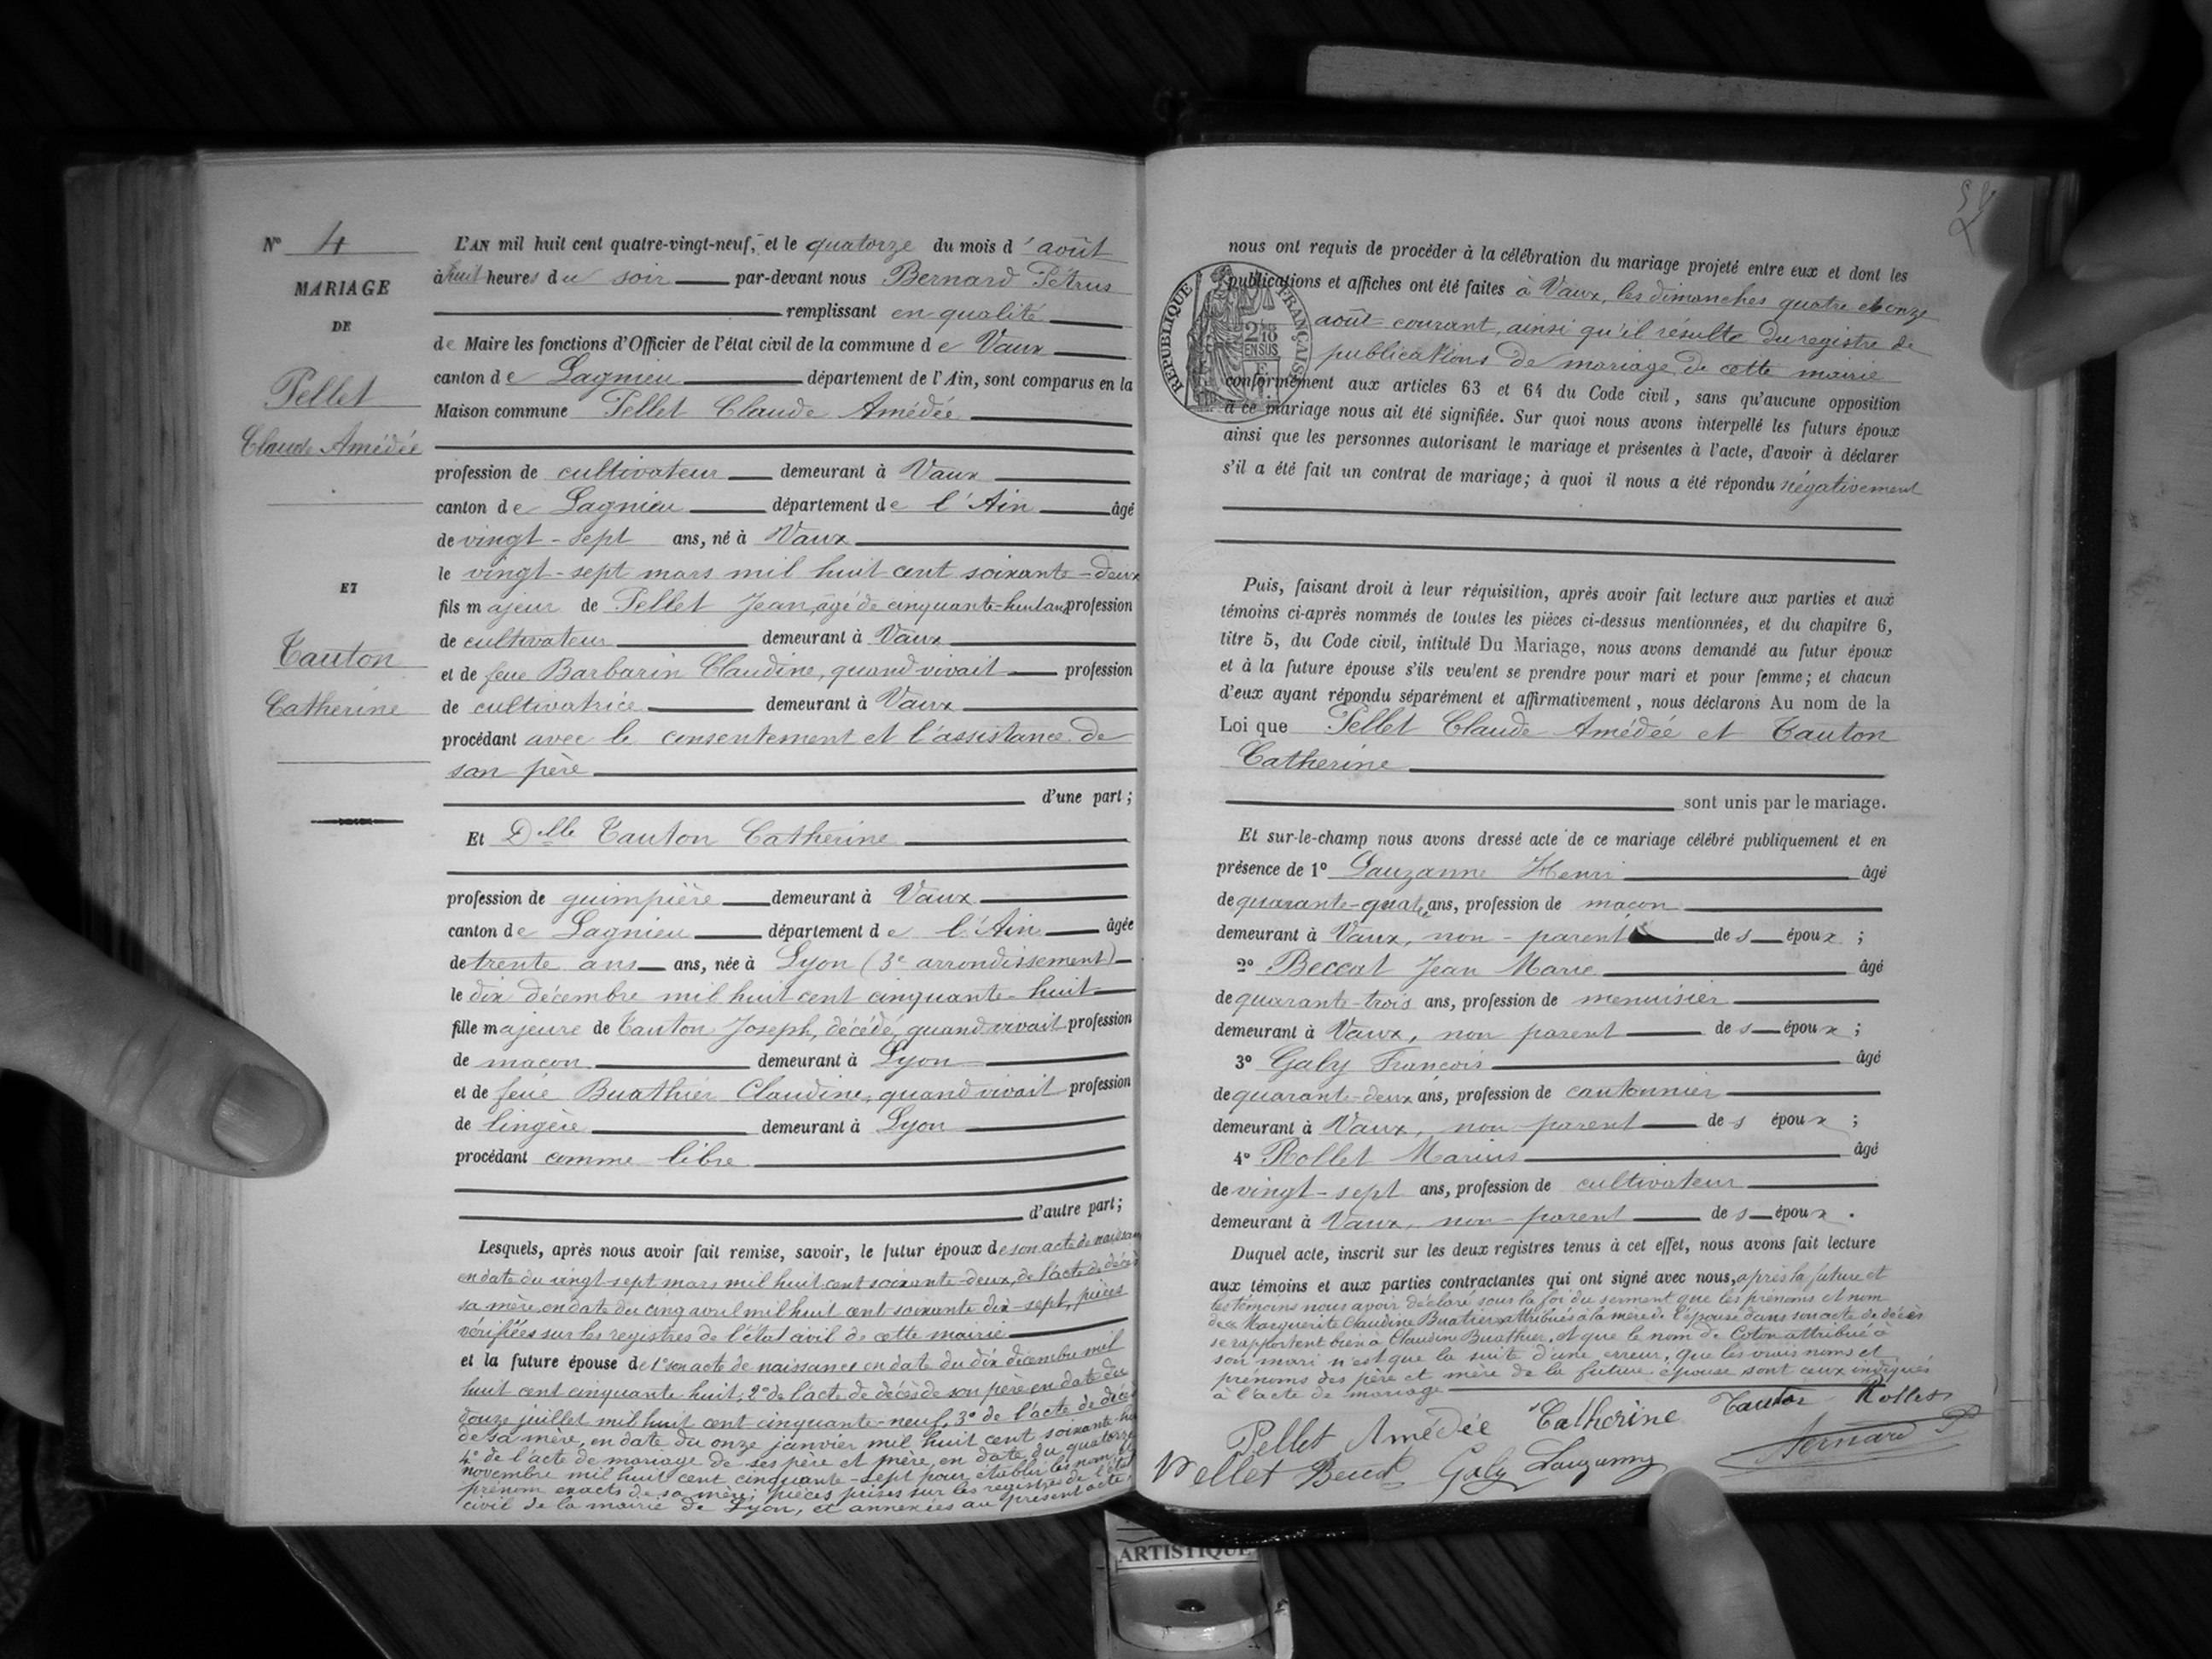 N° 4
MARIAGE
DE
Pellet
Claude Amédée
ET
Tauton
Catherine
L'AN mil huit cent quatre-vingt-neuf, et le quatorze du mois d'août
à huit heures du soir par-devant nous Bernard Pétrus
remplissant en qualité
de Maire les fonctions d'Officier de l'état civil de la commune de Vaux
canton de Lagnieu département de l'Ain, sont comparus en la
Maison commune Pellet Claude Amédée
profession de cultivateur demeurant à Vaux
canton de Lagnieu département de l'Ain âgé
de vingt-sept ans, né à Vaux
le vingt-sept mars mil huit cent soixante-deux
fils majeur de Pellet Jean, âgé de cinquante-huit ans profession
de cultivateur demeurant à Vaux
et de feue Barbarin Claudine, quand vivait profession
de cultivatrice demeurant à Vaux
procédant avec le consentement et l'assistance de
son père
d'une part;
Et Dlle Tauton Catherine
profession de guimpière demeurant à Vaux
canton de Lagnieu département de l'Ain âgée
de trente ans ans, née à Lyon (3e arrondissement)
le dix décembre mil huit cent cinquante-huit
fille majeure de Tauton Joseph, décédé, quand vivait profession
de maçon demeurant à Lyon
et de feue Buathier Claudine, quand vivait profession
de lingère demeurant à Lyon
procédant comme libre
d'autre part;
Lesquels, après nous avoir fait remise, savoir, le futur époux de son acte de naissance
en date du vingt-sept mars mil huit cent soixante-deux, de l'acte de décès
sa mère en date du cinq avril mil huit cent soixante dix-sept, pièces
vérifiées sur les registres de l'état civil de cette mairie
et la future épouse de 1° son acte de naissance en date du dix décembre mil
huit cent cinquante huit; 2° de l'acte de décès de son père en date du
douze juillet mil huit cent cinquante-neuf, 3° de l'acte de décès
de sa mère, en date du onze janvier mil huit cent soixante
4° de l'acte de mariage de ses père et mère, en date du quatorze
novembre mil huit cent cinquante-sept pour établir les nom et
prénom exacts de sa mère; pièces prises sur les registres de l'état
civil de la mairie de Lyon, et annexées au présent acte,
nous ont requis de procéder à la célébration du mariage projeté entre eux et dont les
publications et affiches ont été faites à Vaux, les dimanches quatre et onze
août courant, ainsi qu'il résulte du registre de
publications de mariage de cette mairie
RÉPUBLIQUE FRANÇAISE
EN SUS
conformément aux articles 63 et 64 du Code civil, sans qu'aucune opposition
à ce mariage nous ait été signifiée. Sur quoi nous avons interpellé les futurs époux
ainsi que les personnes autorisant le mariage et présentes à l'acte, d'avoir à déclarer
s'il a été fait un contrat de mariage; à quoi il nous a été répondu négativement
Puis, faisant droit à leur réquisition, après avoir fait lecture aux parties et aux
témoins ci-après nommés de toutes les pièces ci-dessus mentionnées, et du chapitre 6,
titre 5, du Code civil, intitulé Du Mariage, nous avons demandé au futur époux
et à la future épouse s'ils veulent se prendre pour mari et pour femme; et chacun
d'eux ayant répondu séparément et affirmativement, nous déclarons Au nom de la
Loi que Pellet Claude Amédée et Tauton
Catherine
sont unis par le mariage.
Et sur-le-champ nous avons dressé acte de ce mariage célébré publiquement et en
présence de 1° Lauzanne Henri âgé
de quarante-quatre ans, profession de maçon
demeurant à Vaux, non-parent des époux;
2° Beccat Jean Marie âgé
de quarante-trois ans, profession de menuisier
demeurant à Vaux, non parent des époux;
3° Galy François âgé
de quarante-deux ans, profession de cantonnier
demeurant à Vaux, non-parent des époux;
4° Rollet Marius âgé
de vingt-sept ans, profession de cultivateur
demeurant à Vaux, non-parent des époux.
Duquel acte, inscrit sur les deux registres tenus à cet effet, nous avons fait lecture
aux témoins et aux parties contractantes qui ont signé avec nous, après la future et
les témoins nous avoir déclaré sous la foi du serment que les prénoms et nom
de Marguerite Claudine Buatier attribués à la mère de l'épouse dans son acte de décès
se rapportent bien à Claudine Buathier, et que le nom de Coton attribué à
son mari n'est que la suite d'une erreur, que les vrais noms et
prénoms des père et mère de la future épouse sont ceux indiqués
à l'acte de mariage
Pellet Amédée Catherine Tauton Rollet
Pellet Galy Lauzanne Bernard P
ARTISTIQUE